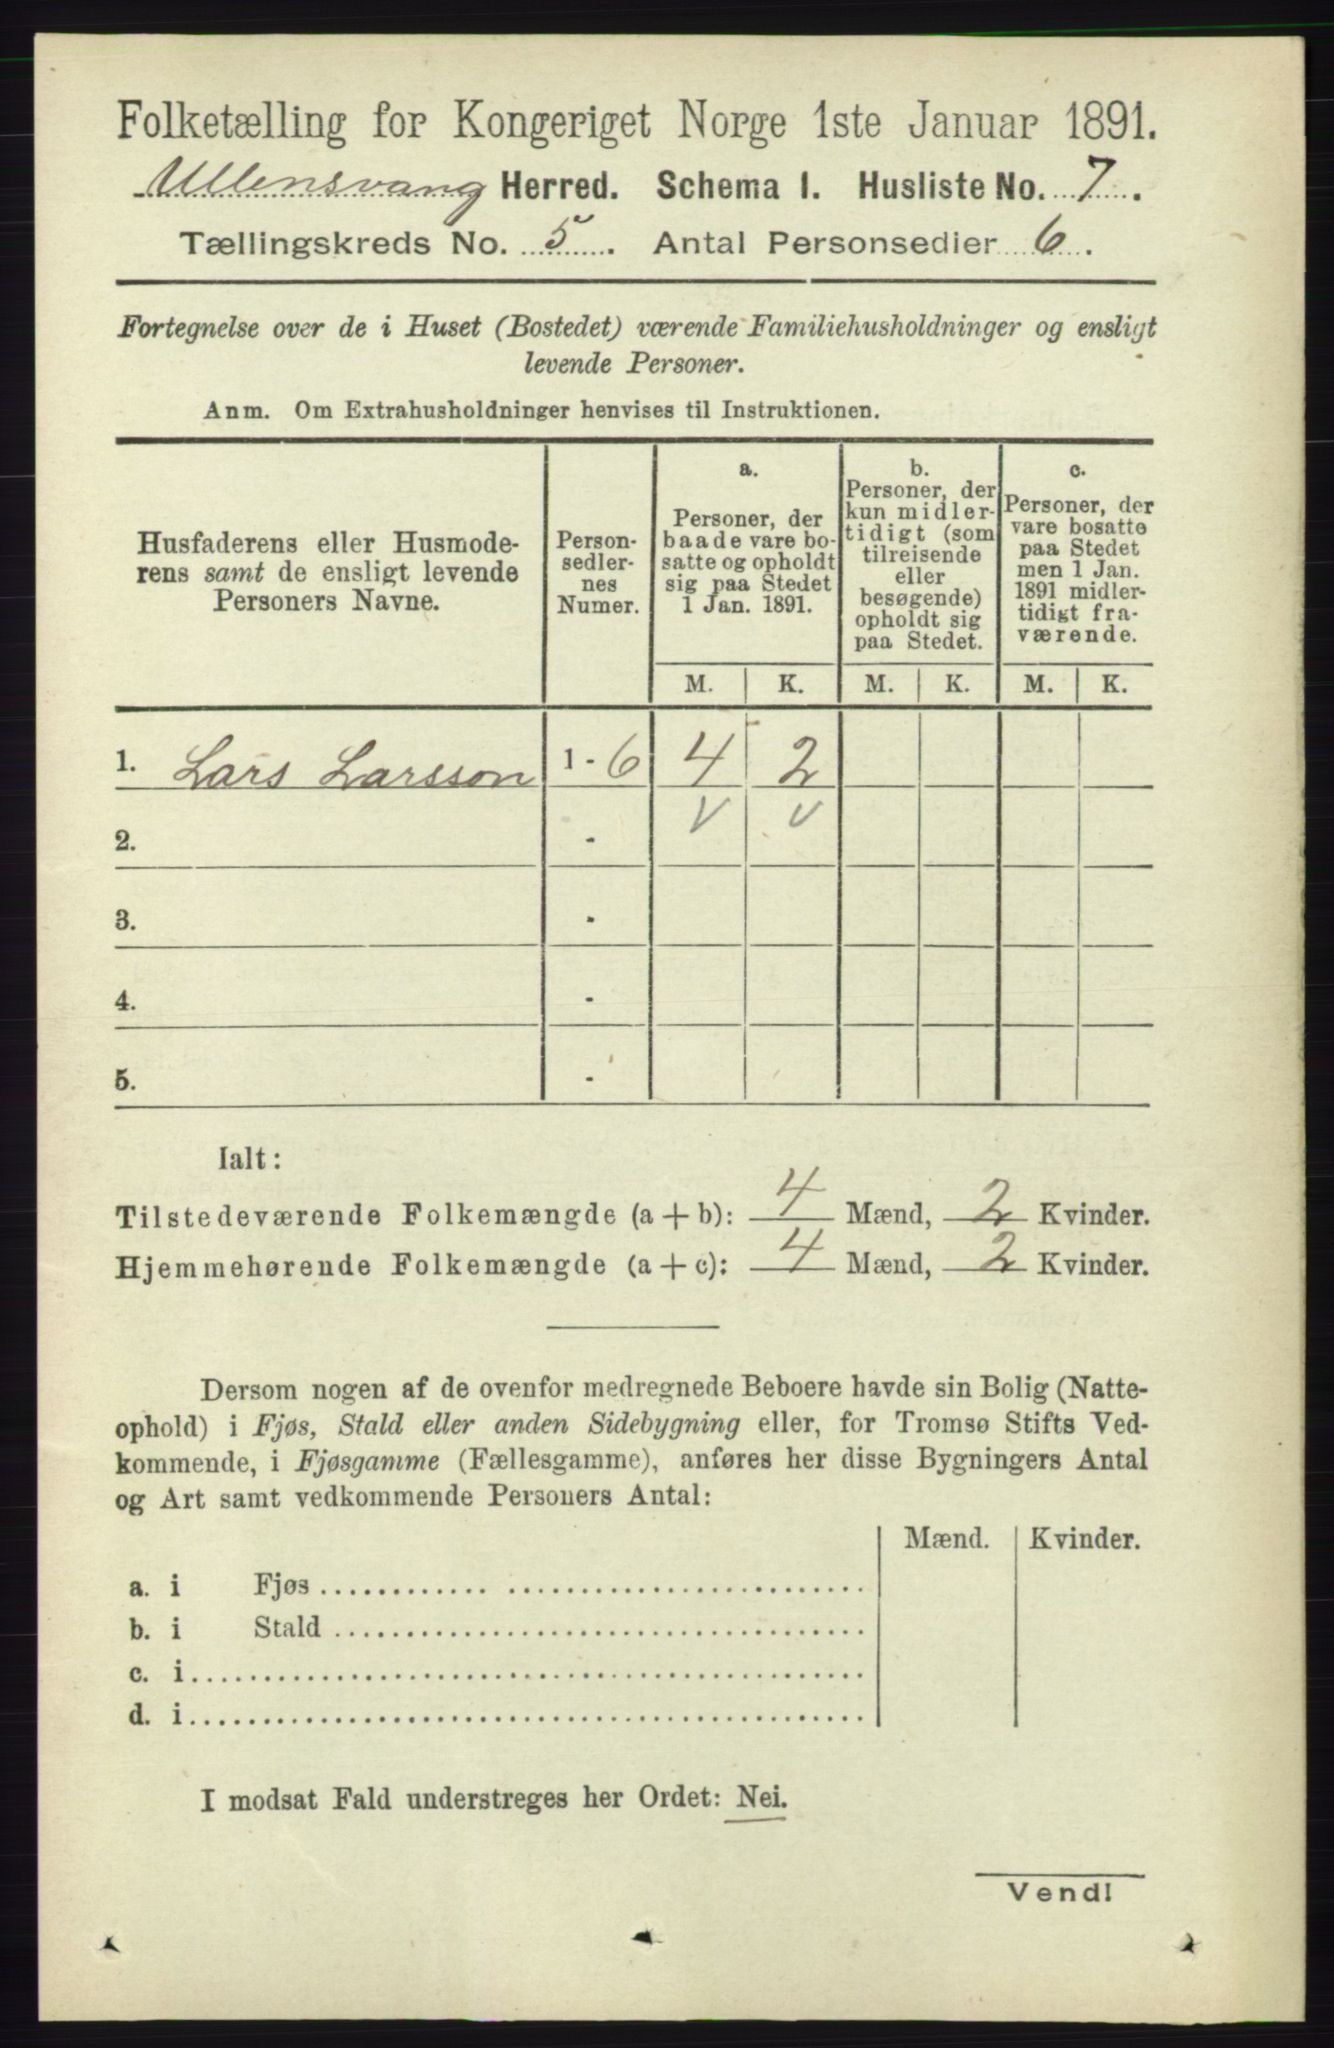 Folketælling for Kongeriget Norge 1ste Januar 1891.
Ullensvang Herred. Schema 1. Husliste No. 7.
Tællingskreds No. 5. Antal Personsedler 6.
Fortegnelse over de i Huset (Bostedet) værende Familiehusholdninger og ensligt
levende Personer.
Anm. Om Extrahusholdninger henvises til Instruktionen.
Husfaderens eller Husmode-
rens samt de ensligt levende
Personers Navne.
Person-
sedler-
nes
Numer.
a.
Personer, der
baade vare bo-
satte og opholdt
sig paa Stedet
1 Jan. 1891.
b.
Personer, der
kun midler-
tidigt (som
tilreisende
eller
besøgende)
opholdt sig
paa Stedet.
c.
Personer, der
vare bosatte
paa Stedet
men 1 Jan.
1891 midler-
tidigt fra-
værende.
M. K. M. K. M. K.
1. Lars Larsson 1 - 6 4 2
2. - V V
3. -
4. -
5. -
Ialt:
Tilstedeværende Folkemængde (a + b): 4 Mænd, 2 Kvinder.
Hjemmehørende Folkemængde (a + c): 4 Mænd, 2 Kvinder.
Dersom nogen af de ovenfor medregnede Beboere havde sin Bolig (Natte-
ophold) i Fjøs, Stald eller anden Sidebygning eller, for Tromsø Stifts Ved-
kommende, i Fjøsgamme (Fællesgamme), anføres her disse Bygningers Antal
og Art samt vedkommende Personers Antal:
Mænd. Kvinder.
a. i Fjøs
b. i Stald
c. i
d. i
I modsat Fald understreges her Ordet: Nei.
Vend!